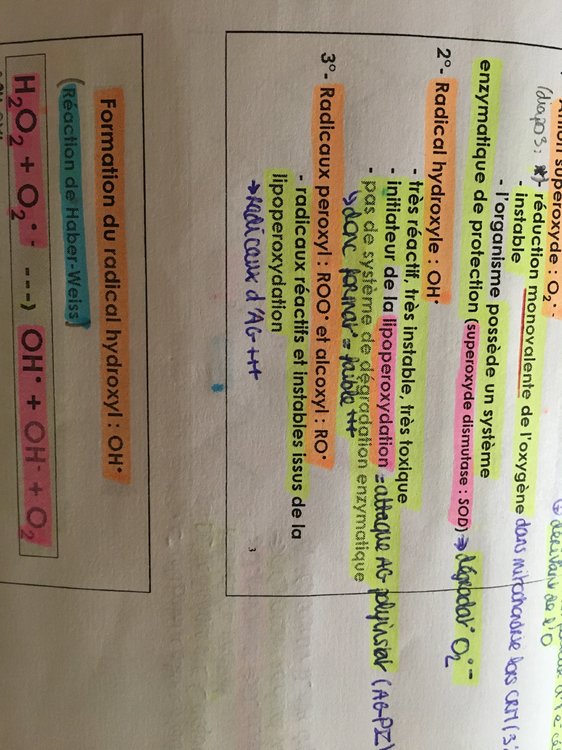 Anion superoxyde : O₂•-
(diapo3 :
- réduction monovalente de l'oxygène dans mitochondrie lors CRM (3
- instable
- l'organisme possède un système
enzymatique de protection (superoxyde dismutase : SOD) ⇒ dégradat° O₂°-
2°- Radical hydroxyle : OH•
- très réactif, très instable, très toxique
- initiateur de la lipoperoxydation = attaque AG polyinsat (AG-PI)
- pas de système de dégradation enzymatique
↳ donc format° = faible ++
3°- Radicaux peroxyl : ROO• et alcoxyl : RO•
- radicaux réactifs et instables issus de la
lipoperoxydation
→ radicaux d'AG +++
3
Formation du radical hydroxyl : OH•
(Réaction de Haber-Weiss)
H₂O₂ + O₂•- ---) OH• + OH- + O₂